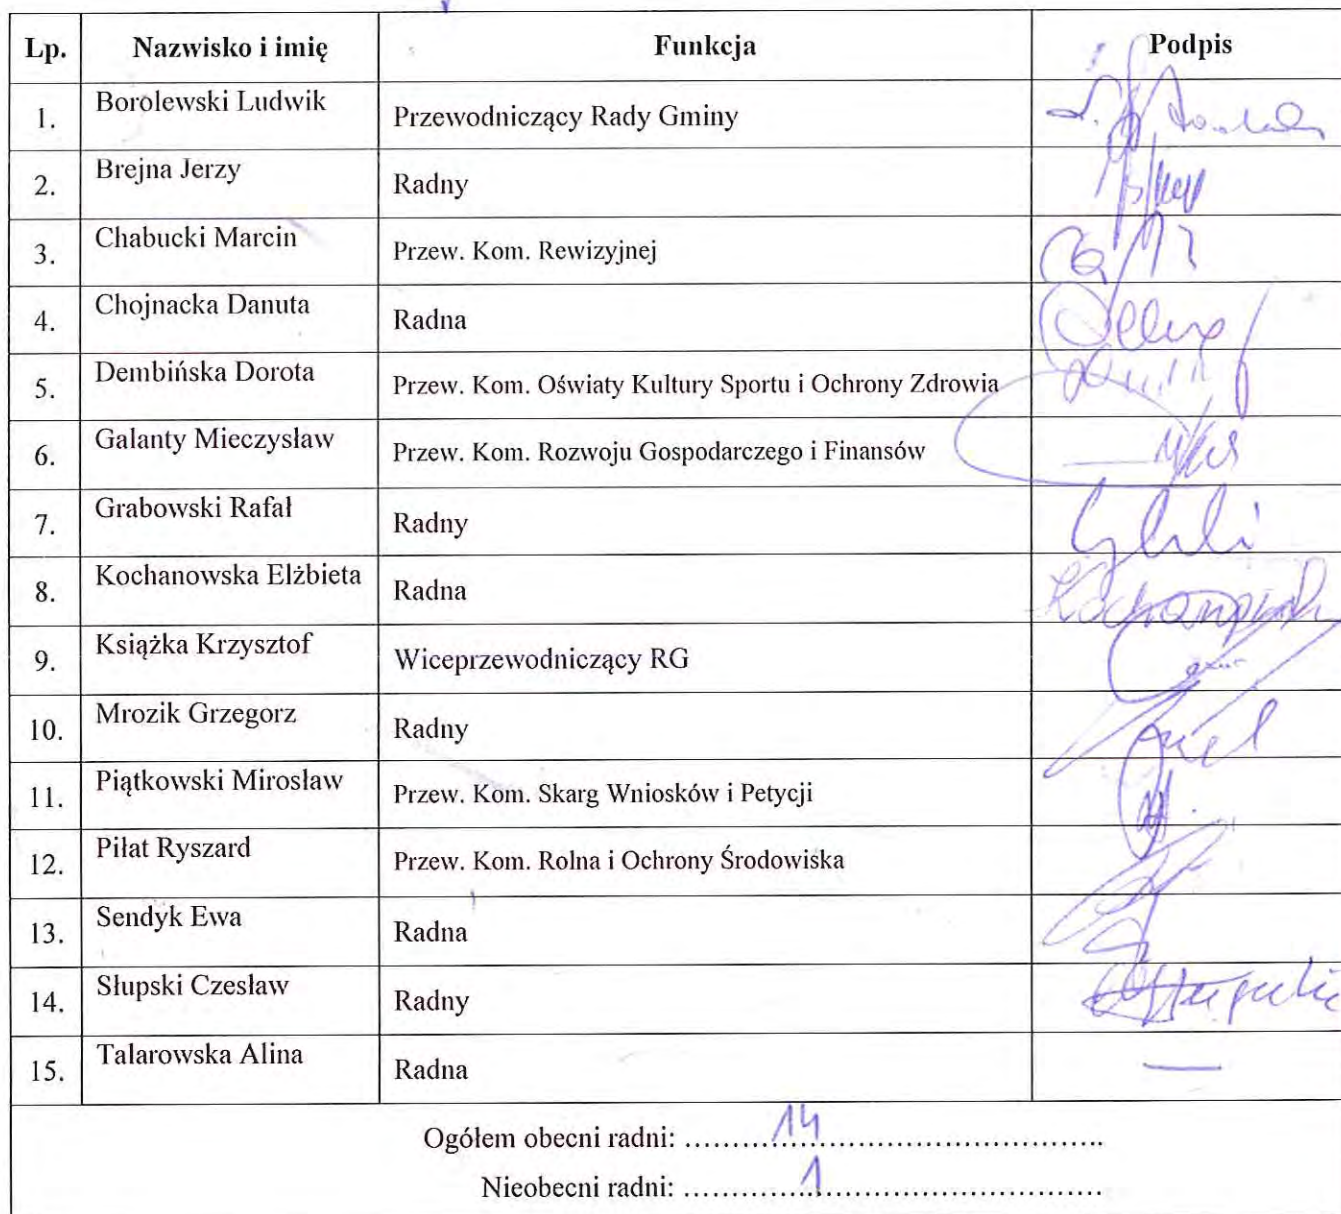 Lp. Nazwisko i imię Funkcja Podpis
1. Borolewski Ludwik Przewodniczący Rady Gminy
2. Brejna Jerzy Radny
3. Chabucki Marcin Przew. Kom. Rewizyjnej
4. Chojnacka Danuta Radna
5. Dembińska Dorota Przew. Kom. Oświaty Kultury Sportu i Ochrony Zdrowia
6. Galanty Mieczysław Przew. Kom. Rozwoju Gospodarczego i Finansów
7. Grabowski Rafał Radny
8. Kochanowska Elżbieta Radna
9. Książka Krzysztof Wiceprzewodniczący RG
10. Mrozik Grzegorz Radny
11. Piątkowski Mirosław Przew. Kom. Skarg Wniosków i Petycji
12. Piłat Ryszard Przew. Kom. Rolna i Ochrony Środowiska
13. Sendyk Ewa Radna
14. Słupski Czesław Radny
15. Talarowska Alina Radna —
Ogółem obecni radni: ........14........
Nieobecni radni: ........1........